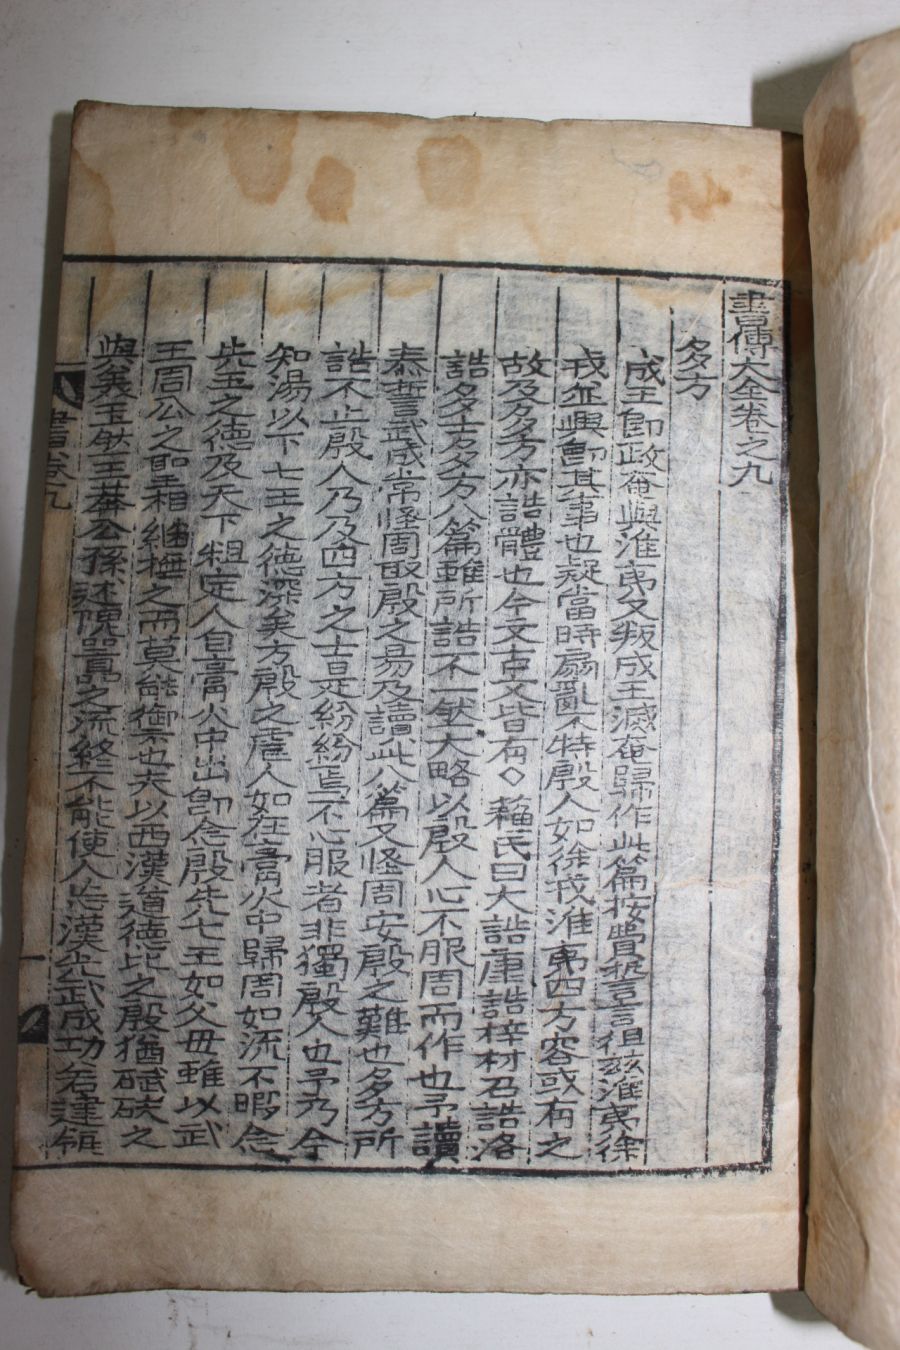 書傳大全卷之九
多方
成王卽政奄與淮夷又叛成王滅奄歸作此篇按費誓言徂玆淮夷徐
戎並興卽其事也疑當時扇亂不特殷人如徐戎淮夷四方容或有之
故及多方亦誥體也今文古文皆有◇蘓氏曰大誥康誥梓材召誥洛
誥多士多方八篇雖所誥不一然大略以殷人心不服周而作也予讀
泰誓武成常怪周取殷之易及讀此八篇又怪周安殷之難也多方所
誥不止殷人乃及四方之士是紛紛焉不心服者非獨殷人也予乃今
知湯以下七王之德深矣方殷之虐人如在膏火中歸周如流不暇念
先王之德及天下粗定人自膏火中出卽念殷先七王如父母雖以武
王周公之聖相繼撫之而莫能御也夫以西漢道德比之殷猶碔砆之
與美玉然王莽公孫述隗嚻之流終不能使人忘漢光武成功若建瓴
書卷九
一